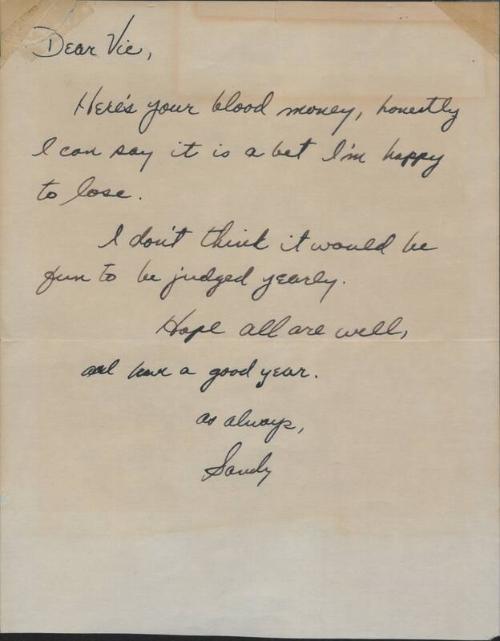 Dear Vic,
Here's your blood money, honestly
I can say it is a bet I'm happy
to lose.
I don't think it would be
fun to be judged yearly.
Hope all are well,
and have a good year.
as always,
Sandy